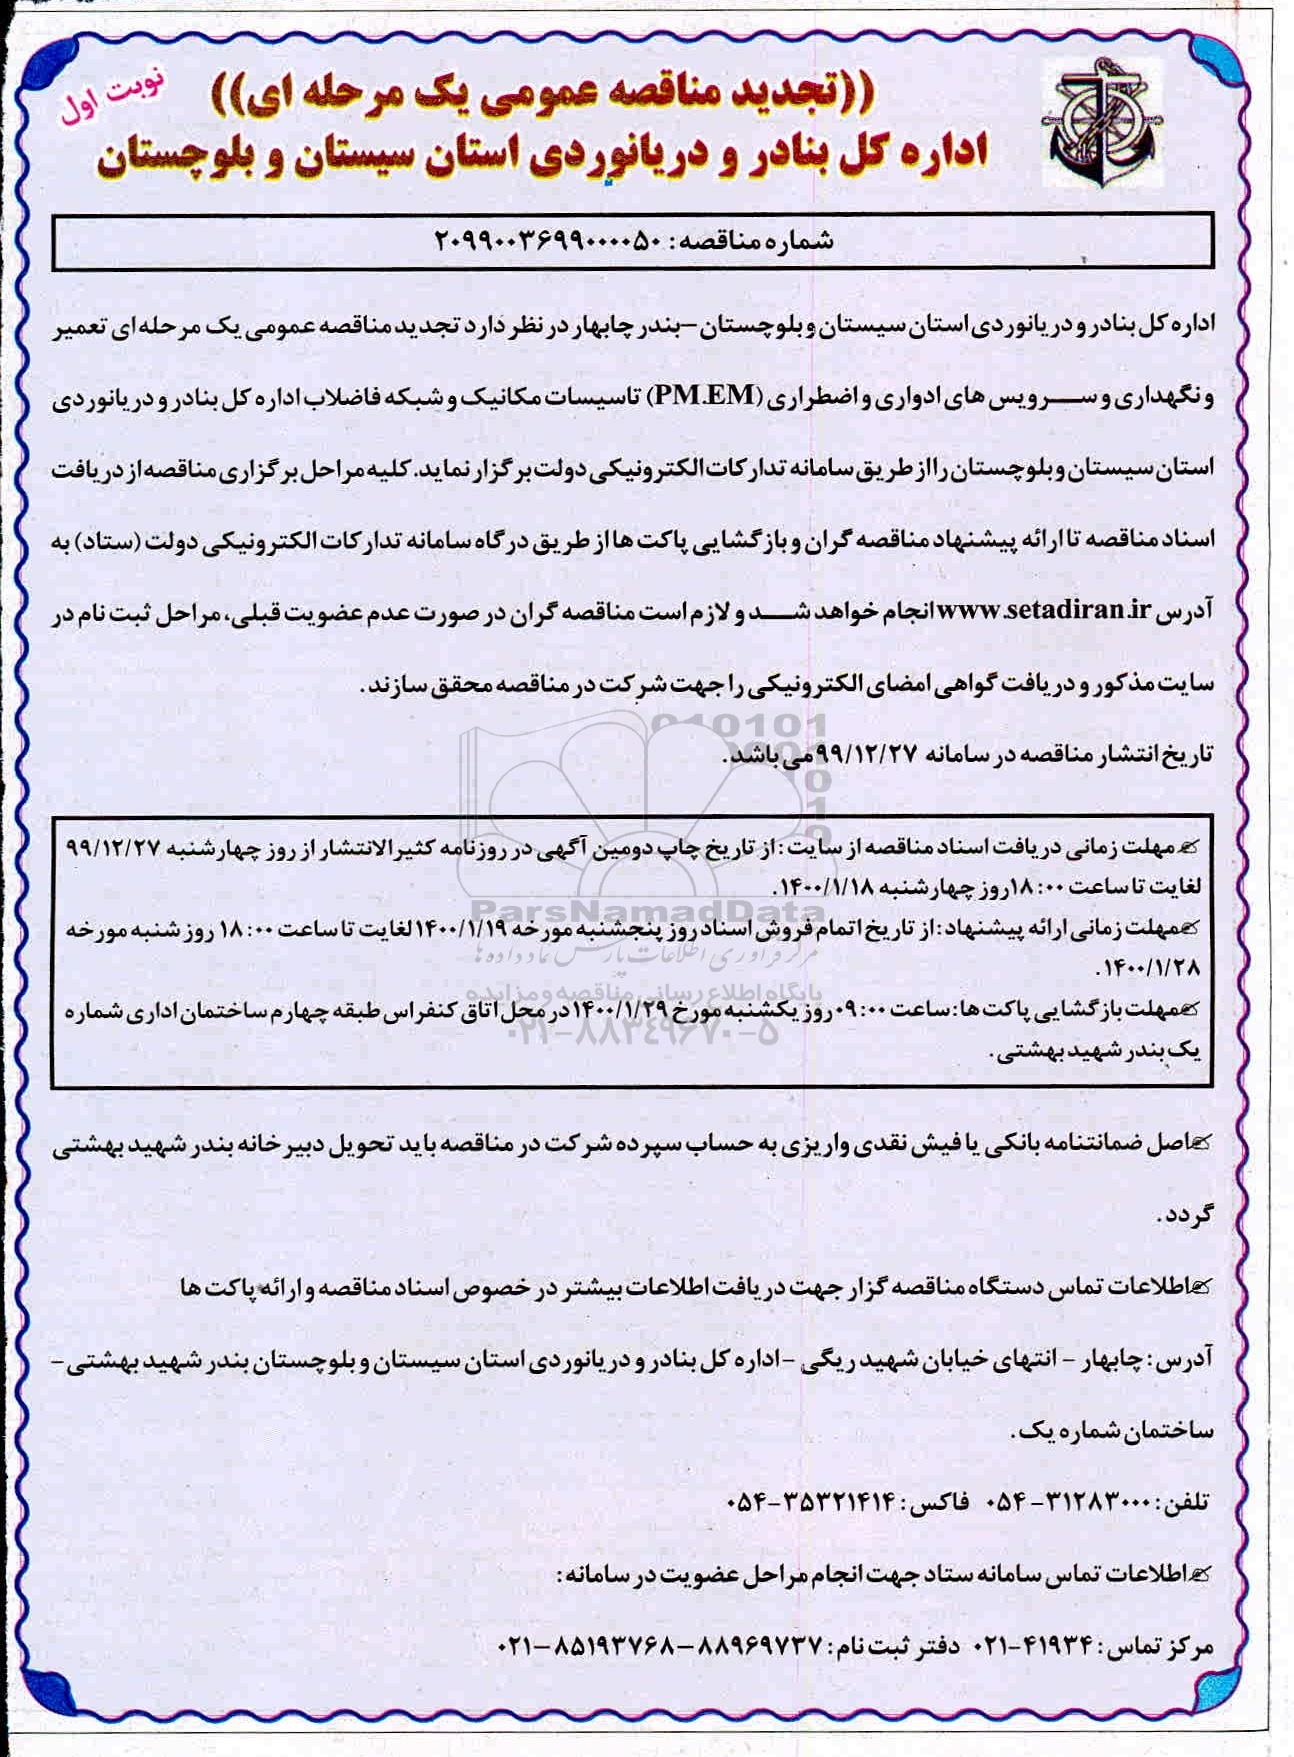 نوبت اول
((تجدید مناقصه عمومی یک مرحله ای))
اداره کل بنادر و دریانوردی استان سیستان و بلوچستان
شماره مناقصه: ۲۰۹۹۰۰۳۶۹۹۰۰۰۰۵۰
اداره کل بنادر و دریانوردی استان سیستان و بلوچستان –بندر چابهار در نظر دارد تجدید مناقصه عمومی یک مرحله ای تعمیر
و نگهداری و سرویس های ادواری و اضطراری (PM.EM) تاسیسات مکانیک و شبکه فاضلاب اداره کل بنادر و دریانوردی
استان سیستان و بلوچستان را از طریق سامانه تدارکات الکترونیکی دولت برگزار نماید. کلیه مراحل برگزاری مناقصه از دریافت
اسناد مناقصه تا ارائه پیشنهاد مناقصه گران و بازگشایی پاکت ها از طریق درگاه سامانه تدارکات الکترونیکی دولت (ستاد) به
آدرس www.setadiran.ir انجام خواهد شد و لازم است مناقصه گران در صورت عدم عضویت قبلی، مراحل ثبت نام در
سایت مذکور و دریافت گواهی امضای الکترونیکی را جهت شرکت در مناقصه محقق سازند.
تاریخ انتشار مناقصه در سامانه ۹۹/۱۲/۲۷ می باشد.
مهلت زمانی دریافت اسناد مناقصه از سایت: از تاریخ چاپ دومین آگهی در روزنامه کثیرالانتشار از روز چهارشنبه ۹۹/۱۲/۲۷
لغایت تا ساعت ۱۸:۰۰ روز چهارشنبه ۱۴۰۰/۱/۱۸.
مهلت زمانی ارائه پیشنهاد: از تاریخ اتمام فروش اسناد روز پنجشنبه مورخه ۱۴۰۰/۱/۱۹ لغایت تا ساعت ۱۸:۰۰ روز شنبه مورخه
۱۴۰۰/۱/۲۸.
مهلت بازگشایی پاکت ها: ساعت ۰۹:۰۰ روز یکشنبه مورخ ۱۴۰۰/۱/۲۹ در محل اتاق کنفراس طبقه چهارم ساختمان اداری شماره
یک بندر شهید بهشتی.
اصل ضمانتنامه بانکی یا فیش نقدی واریزی به حساب سپرده شرکت در مناقصه باید تحویل دبیرخانه بندر شهید بهشتی
گردد.
اطلاعات تماس دستگاه مناقصه گزار جهت دریافت اطلاعات بیشتر در خصوص اسناد مناقصه و ارائه پاکت ها
آدرس: چابهار – انتهای خیابان شهید ریگی –اداره کل بنادر و دریانوردی استان سیستان و بلوچستان بندر شهید بهشتی–
ساختمان شماره یک.
تلفن: ۳۱۲۸۳۰۰۰–۰۵۴ فاکس: ۳۵۳۲۱۴۱۴–۰۵۴
اطلاعات تماس سامانه ستاد جهت انجام مراحل عضویت در سامانه:
مرکز تماس: ۴۱۹۳۴–۰۲۱ دفتر ثبت نام: ۸۸۹۶۹۷۳۷–۸۵۱۹۳۷۶۸–۰۲۱
ParsNamadData
مرکز فرآوری اطلاعات پارس نماد داده ها
پایگاه اطلاع رسانی مناقصه و مزایده
۰۲۱–۸۸۳۴۹۶۷۰–۵